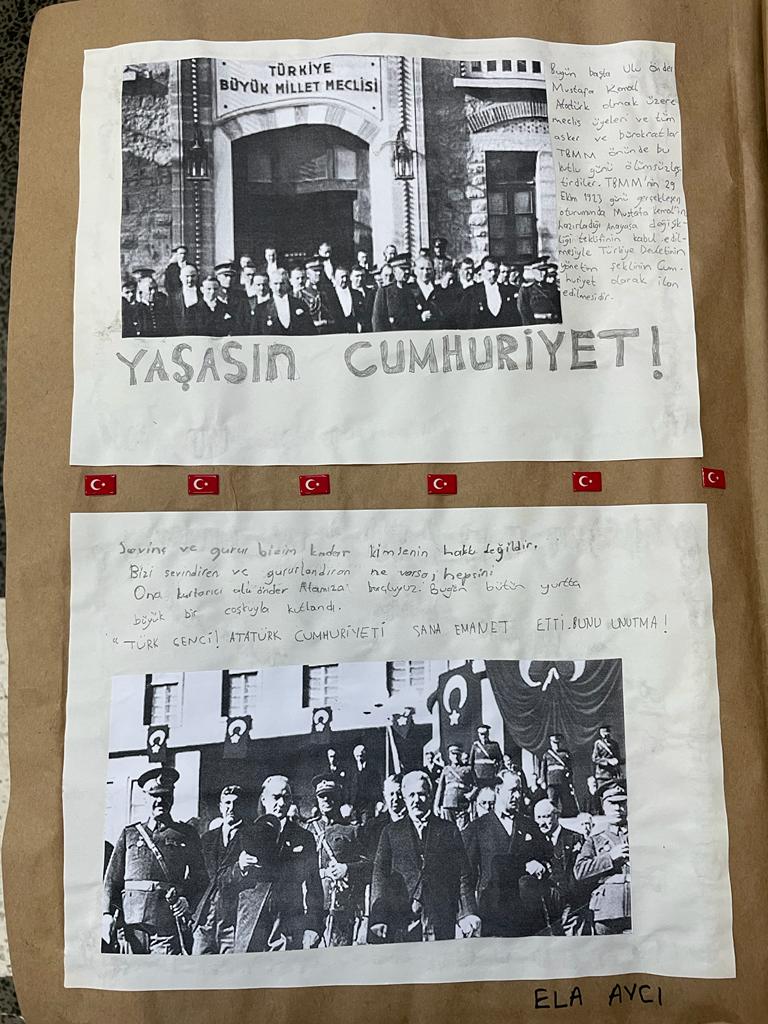 TÜRKİYE
BÜYÜK MİLLET MECLİSİ
Bugün başta Ulu önder
Mustafa Kemal
Atatürk olmak üzere
meclis üyeleri ve tüm
asker ve bürokratlar
TBMM önünde bu
kutlu günü ölümsüzleş
tirdiler. TBMM'nin 29
Ekim 1923 günü gerçekleşen
oturumunda Mustafa Kemal'in
hazırladığı Anayasa değişik-
liği teklifinin kabul edil-
mesiyle Türkiye Devletinin
yönetim şeklinin Cum-
huriyet olarak ilan
edilmesidir.
YAŞASIN CUMHURİYET!
Sevinç ve gurur bizim kadar kimsenin hakkı değildir.
Bizi sevindiren ve gururlandıran ne varsa; hepsini
Ona kurtarıcı ulu önder Atamıza borçluyuz. Bugün bütün yurtta
büyük bir coşkuyla kutlandı.
"TÜRK GENCİ! ATATÜRK CUMHURİYETİ SANA EMANET ETTİ. BUNU UNUTMA!
ELA AVCI